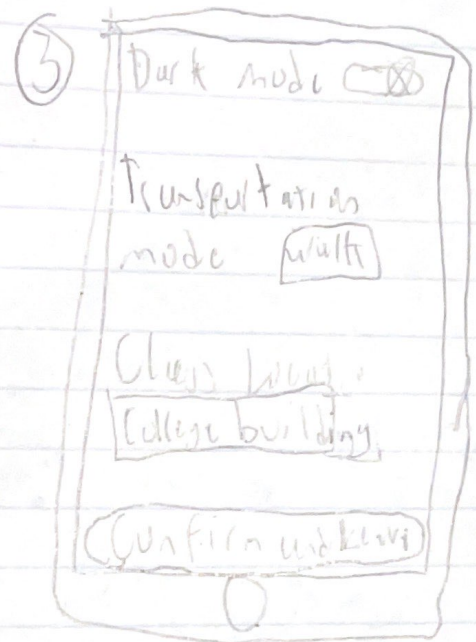 3
Dark mode
Transportation
mode walk
Class
College building
Confirm and